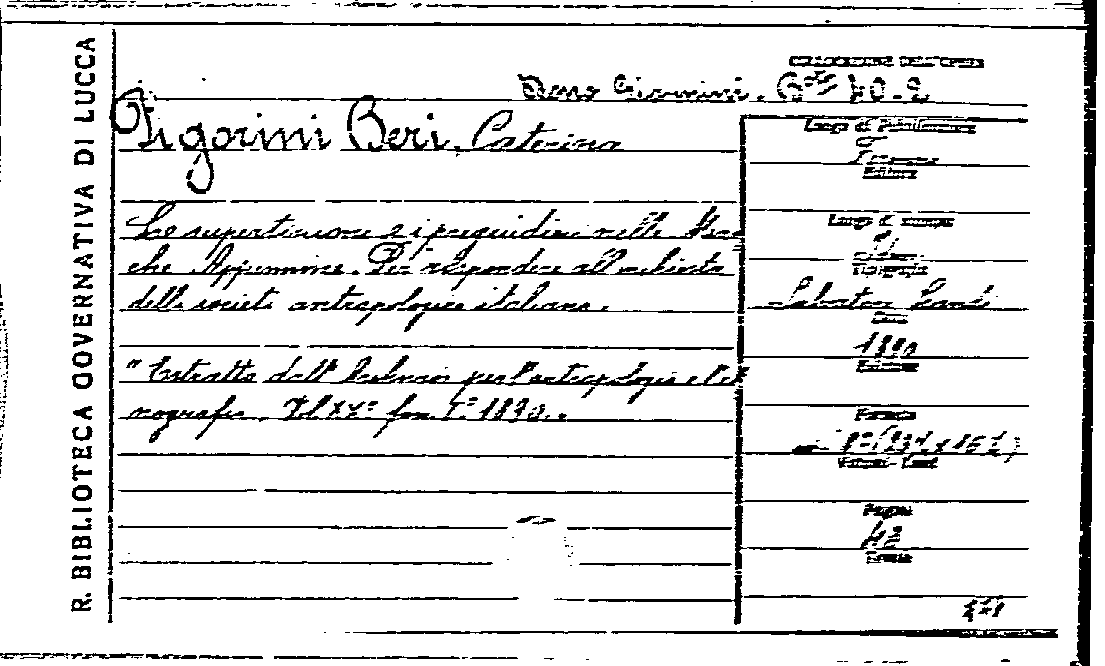 R. BIBLIOTECA GOVERNATIVA DI LUCCA
Dono Giannini. 40-2
Pigorini Beri, Caterina
Le superstizioni e i pregiudizi nelle Mar
che Appennine. Per rispondere all'inchiesta
della società antropologica italiana.
"Estratto dall'Archivio per l'antropologia e l'et
nografia. Vol XX° fasc 1° 1890.
Luogo di Pubblicazione
Firenze
Editore
Luogo di stampa
Tipografia
Salvatore Landi
Anno
1890
Edizione
Formato
8°
Volumi -
Pagine
42